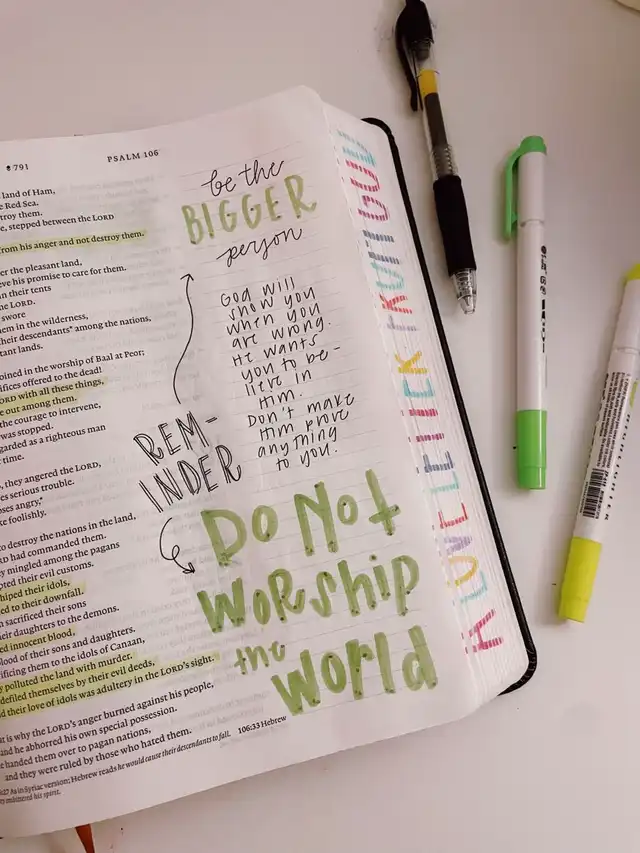 791
PSALM 106
land of Ham,
Red Sea.
troy them.
e, stepped between the LORD
from his anger and not destroy them.
er the pleasant land,
eve his promise to care for them.
n their tents
he LORD.
swore
hem in the wilderness,
their descendants* among the nations,
tant lands.
joined in the worship of Baal at Peor;
ifices offered to the dead!
ORD with all these things,
e out among them.
the courage to intervene,
was stopped.
garded as a righteous man
time.
, they angered the LORD,
es serious trouble.
oses angry,*
ke foolishly.
o destroy the nations in the land,
RD had commanded them.
y mingled among the pagans
pted their evil customs.
hiped their idols,
ed to their downfall.
n sacrificed their sons
heir daughters to the demons.
ed innocent blood,
blood of their sons and daughters.
ificing them to the idols of Canaan,
y polluted the land with murder.
defiled themselves by their evil deeds,
d their love of idols was adultery in the LORD's sight.
t is why the LORD's anger burned against his people,
and he abhorred his own special possession.
handed them over to pagan nations,
and they were ruled by those who hated them.
As in Syriac version; Hebrew reads he would cause their descendants to fall. 106:33 Hebrew
embittered his spirit.
be the
BIGGER
person
God will
show you
when you
are wrong.
He wants
you to be-
lieve in
Him.
Don't make
Him prove
anything
to you.
REM-
INDER
DO NOT
WORSHIP
the
WORLD
A LOVE LETTER FROM GOD